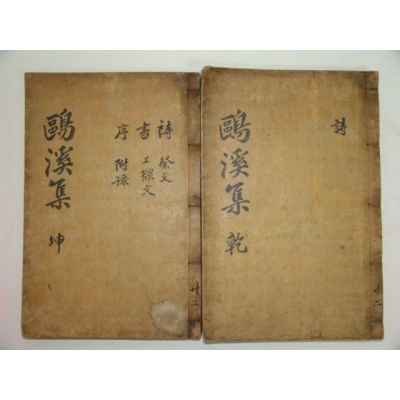 共二
詩
鷗溪集 乾
共二
詩 祭文
書 上樑文
序 附錄
鷗溪集 坤